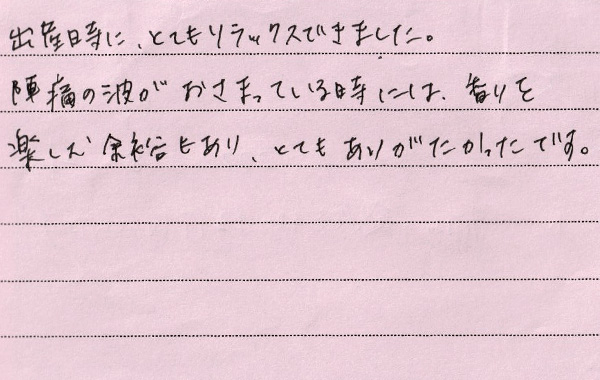 出産時に、とてもリラックスできました。
陣痛の波がおさまっている時には、香りを
楽しむ余裕もあり、とてもありがたかったです。